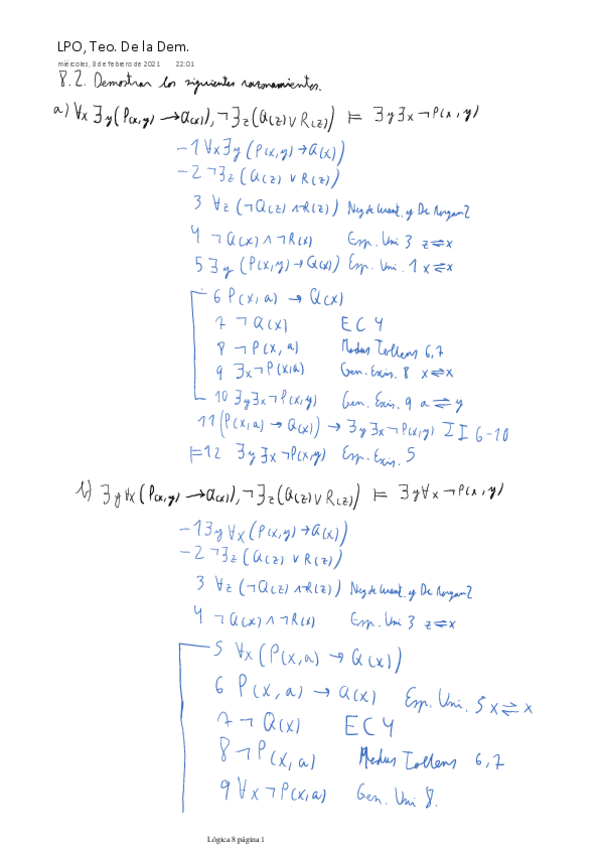 LPO, Teo. De la Dem.
miércoles, 3 de febrero de 2021 22:01
8.2. Demostrar los siguientes razonamientos.
a) ∀x ∃y (P(x,y) → Q(x)), ¬∃z (Q(z) ∨ R(z)) ⊨ ∃y ∃x ¬P(x,y)
-1 ∀x ∃y (P(x,y) → Q(x))
-2 ¬∃z (Q(z) ∨ R(z))
3 ∀z (¬Q(z) ∧ ¬R(z)) Neg de Cuant. y De Morgan 2
4 ¬Q(x) ∧ ¬R(x) Esp. Uni 3 z ⇌ x
5 ∃y (P(x,y) → Q(x)) Esp. Uni. 1 x ⇌ x
6 P(x,a) → Q(x)
7 ¬Q(x) EC 4
8 ¬P(x,a) Modus Tollens 6,7
9 ∃x ¬P(x,a) Gen. Exis. 8 x ⇌ x
10 ∃y ∃x ¬P(x,y) Gen. Exis. 9 a ⇌ y
11 (P(x,a) → Q(x)) → ∃y ∃x ¬P(x,y) II 6-10
⊨12 ∃y ∃x ¬P(x,y) Esp. Exis. 5
b) ∃y ∀x (P(x,y) → Q(x)), ¬∃z (Q(z) ∨ R(z)) ⊨ ∃y ∀x ¬P(x,y)
-1 ∃y ∀x (P(x,y) → Q(x))
-2 ¬∃z (Q(z) ∨ R(z))
3 ∀z (¬Q(z) ∧ ¬R(z)) Neg de Cuant. y De Morgan 2
4 ¬Q(x) ∧ ¬R(x) Esp. Uni 3 z ⇌ x
5 ∀x (P(x,a) → Q(x))
6 P(x,a) → Q(x) Esp. Uni. 5 x ⇌ x
7 ¬Q(x) EC 4
8 ¬P(x,a) Modus Tollens 6,7
9 ∀x ¬P(x,a) Gen. Uni 8.
Lógica 8 página 1